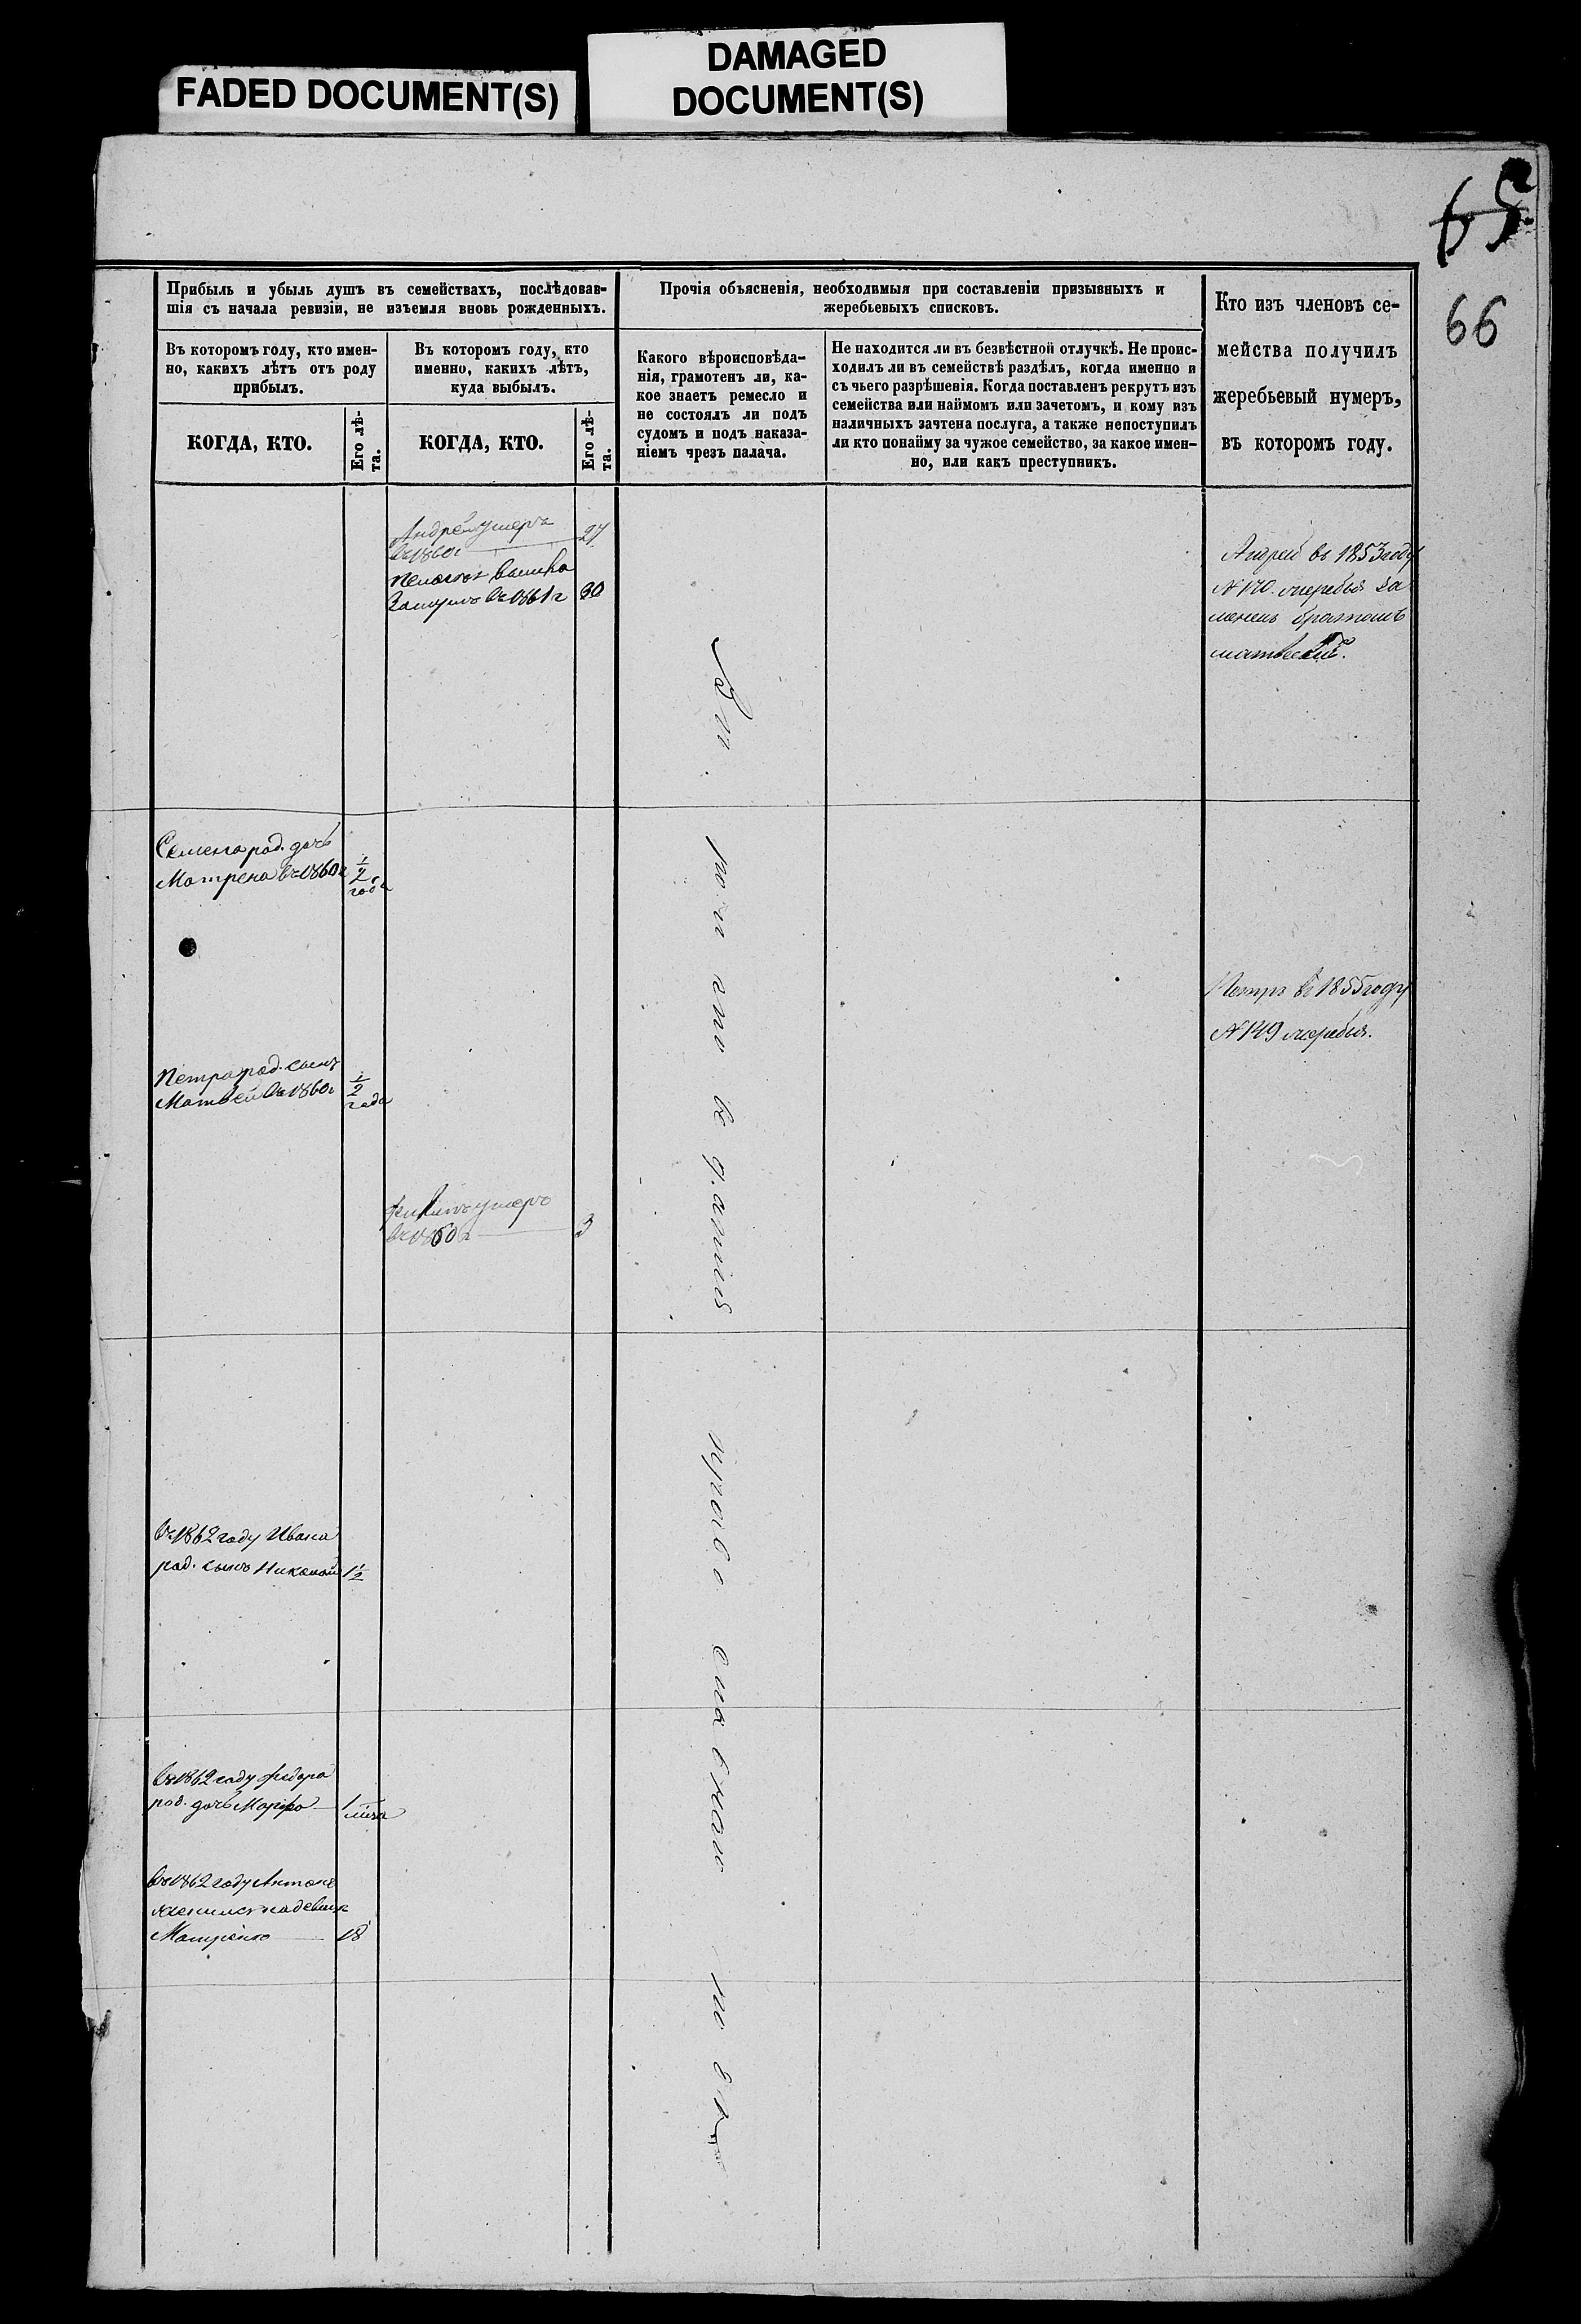 FADED DOCUMENT(S)
DAMAGED
DOCUMENT(S)
65
66
Прибыль и убыль душъ въ семействахъ, послѣдовав-
шія съ начала ревизіи, не изъемля вновь рожденныхъ.
Въ которомъ году, кто имен-
но, какихъ лѣтъ отъ роду
прибылъ.
КОГДА, КТО.
Его лѣ-
та.
Въ которомъ году, кто
именно, какихъ лѣтъ,
куда выбылъ.
КОГДА, КТО.
Его лѣ-
та.
Прочія объясненія, необходимыя при составленіи призывныхъ и
жеребьевыхъ списковъ.
Какого вѣроисповѣда-
нія, грамотенъ ли, ка-
кое знаетъ ремесло и
не состоялъ ли подъ
судомъ и подъ наказа-
ніемъ чрезъ палача.
Не находится ли въ безвѣстной отлучкѣ. Не проис-
ходилъ ли въ семействѣ раздѣлъ, когда именно и
съ чьего разрѣшенія. Когда поставленъ рекрутъ изъ
семейства или наймомъ или зачетомъ, и кому изъ
наличныхъ зачтена послуга, а также непоступилъ
ли кто понайму за чужое семейство, за какое имен-
но, или какъ преступникъ.
Кто изъ членовъ се-
мейства получилъ
жеребьевый нумеръ,
въ которомъ году.
Андрей умеръ
въ 1860г 27
вышла
Замужъ въ 1861г 30
Андрей въ 1853 году
№ 170 жеребья за
менен братомъ
матвеемъ.
Семена род. дочь
Матрена въ 1860г 1/2
года
Петръ въ 1855 году
№ 149 жеребья.
Петра род. сынъ
Матвей въ 1860г 1/2
года
умеръ
3
въ 1862 году Ивана
род. сынъ Николай 1 1/2
въ 1862 году Федора
род. дочь Марфа 1
въ 1862 году Антонъ
женился на девице
Матрене 18
православнаго